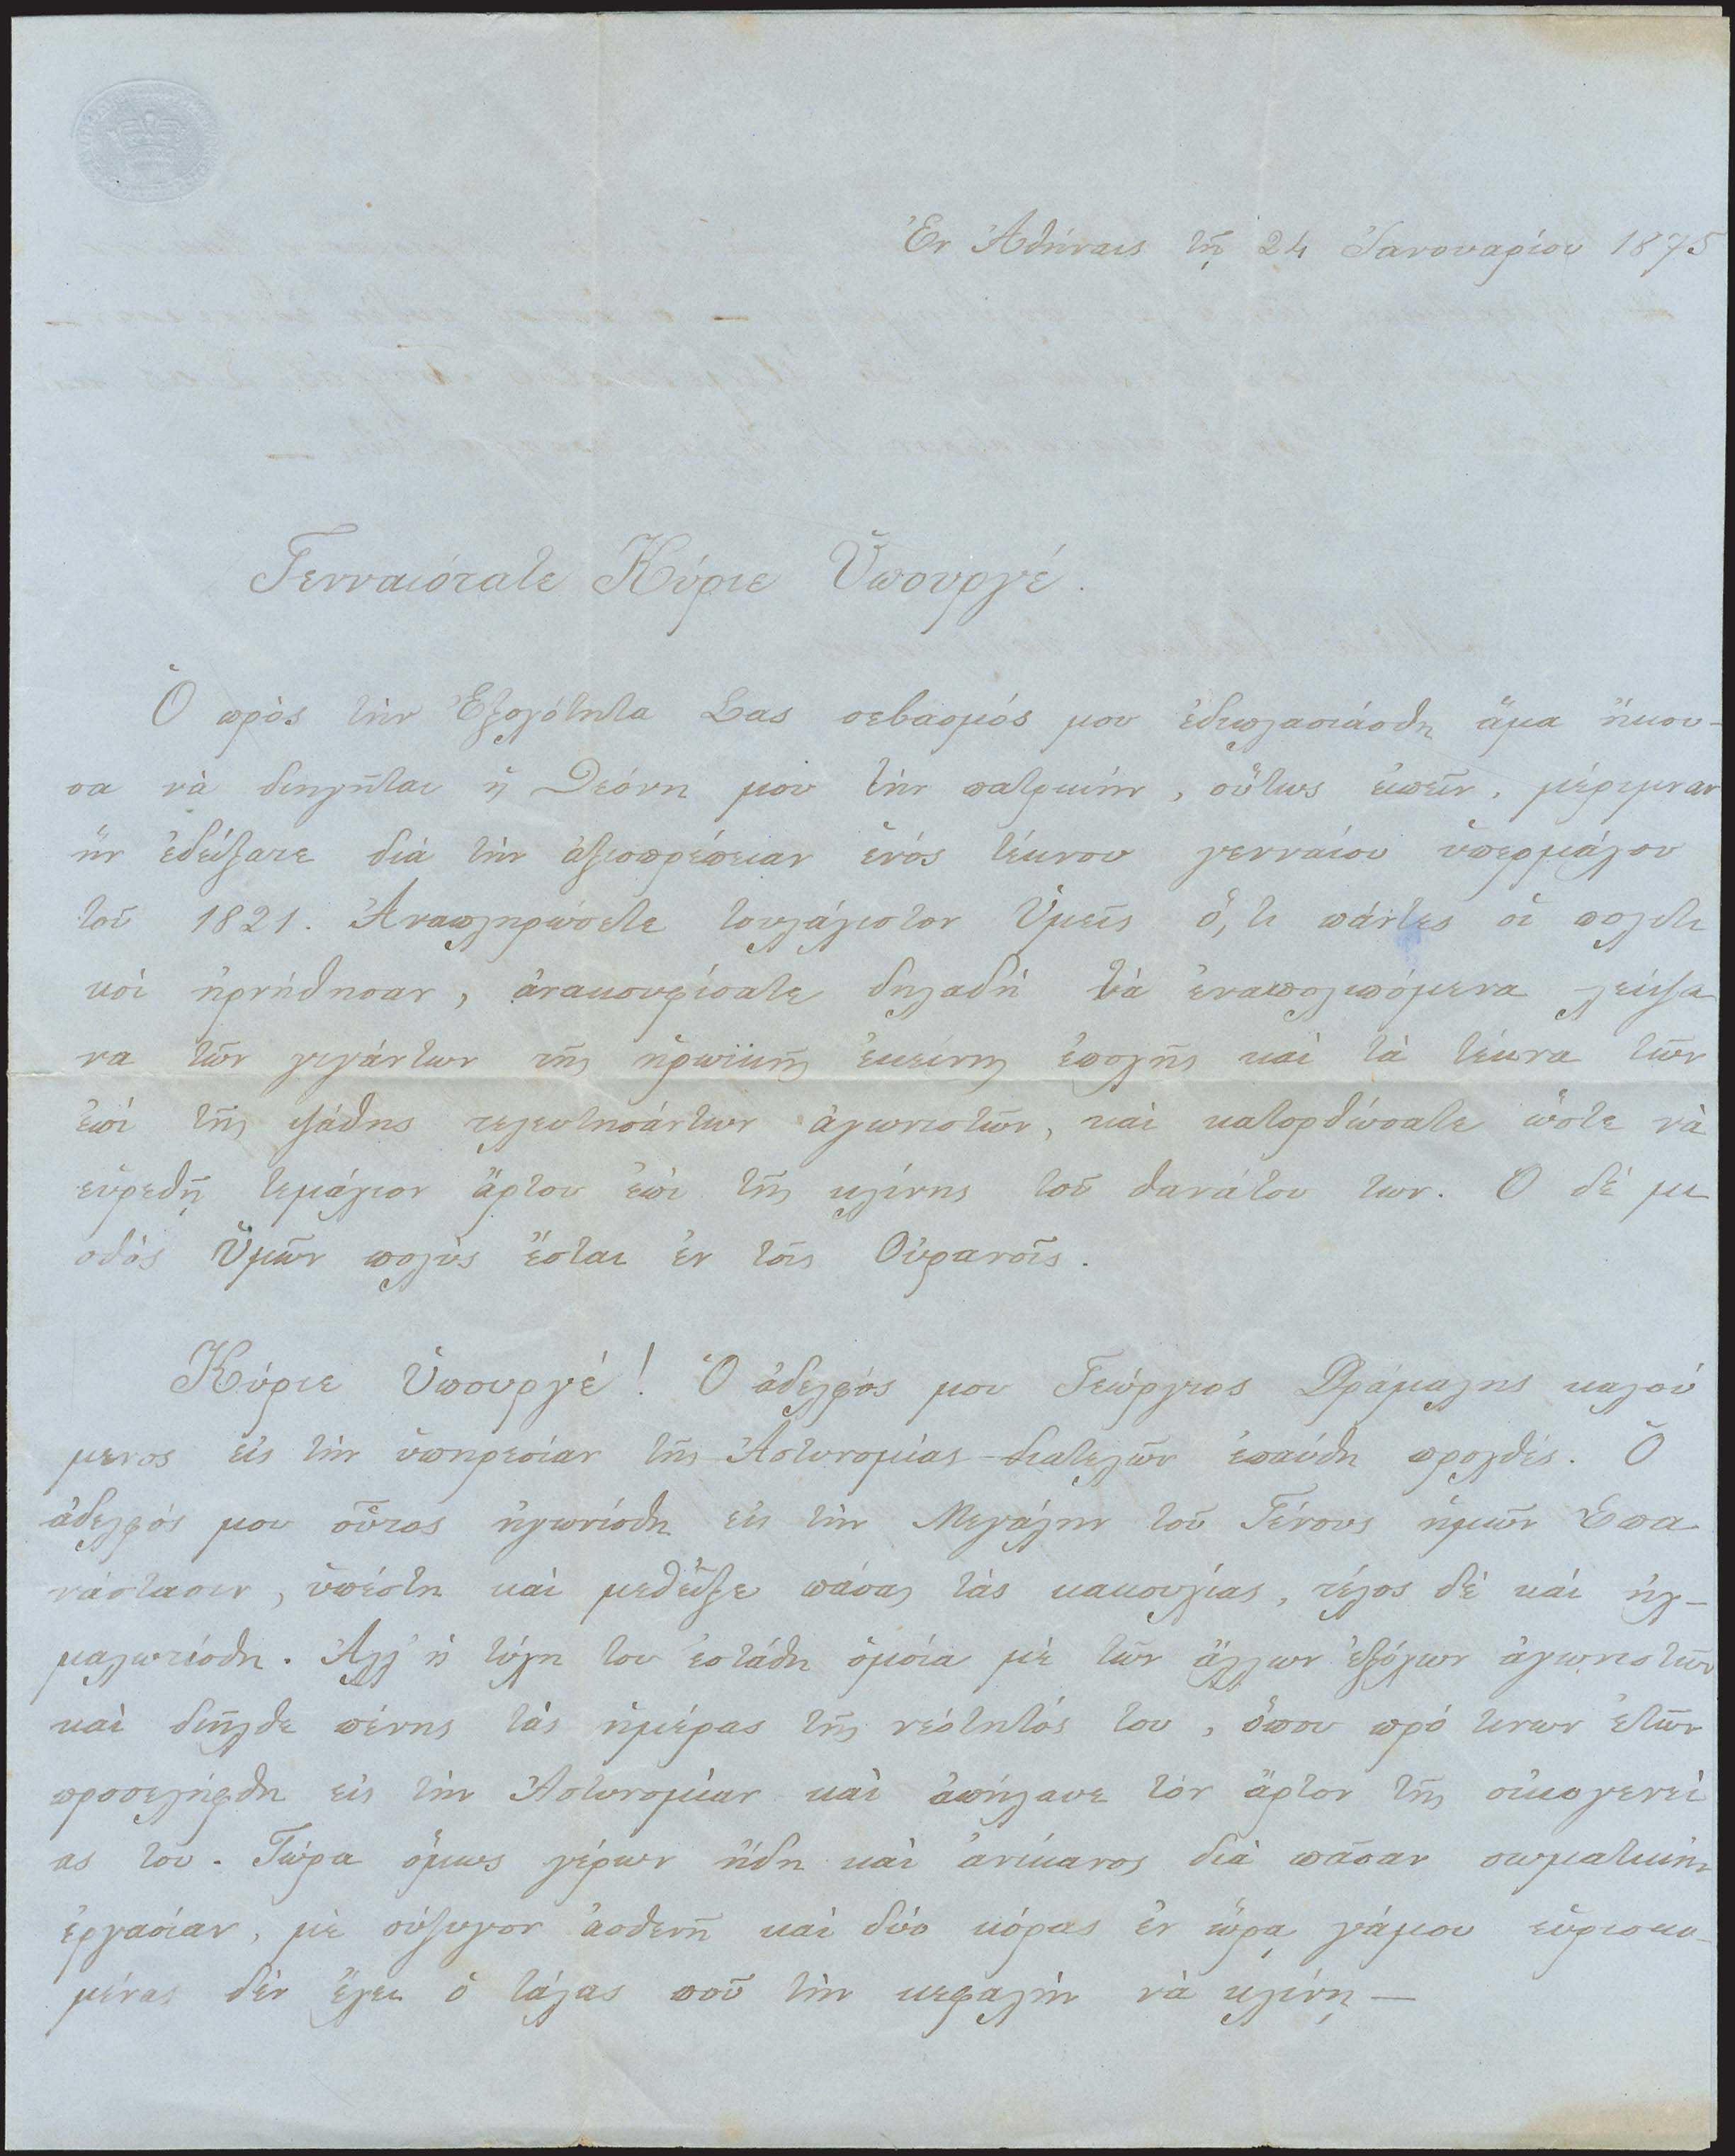 Ἐν Ἀθήναις τῇ 24 Ἰανουαρίου 1875
Γενναιότατε Κύριε Ὑπουργέ.
Ὁ πρὸς τὴν Ἐξοχότητα Σας σεβασμός μου ἐδιπλασιάσθη ἅμα ἤκου-
σα νὰ διηγῆται ἡ μου τὴν πατρικήν, οὕτως εἰπεῖν, μέριμναν
ἣν ἐδείξατε διὰ τὴν ἀξιοπρέπειαν ἑνός τέκνου γενναίου ὑπερμάχου
τοῦ 1821. Ἀναπληρώσετε τουλάχιστον Ὑμεῖς ὅ,τι πάντες οἱ πολιτι
κοὶ ἠρνήθησαν, ἀνακουφίσατε δηλαδή τὰ ἐναπολιπόμενα λείψα
να τῶν γιγάντων τῆς ἡρωϊκῆς ἐκείνης ἐποχῆς καὶ τὰ τέκνα τῶν
ἐπί τῆς ψάθης τελευτησάντων ἀγωνιστῶν, καὶ κατορθώσατε ὥστε νὰ
εὑρεθῇ τεμάχιον ἄρτου ἐπὶ τῆς κλίνης τοῦ θανάτου των. Ὁ δὲ μι
σθὸς Ὑμῶν πολὺς ἔσται ἐν τοῖς Οὐρανοῖς.
Κύριε Ὑπουργέ! Ὁ ἀδελφός μου Γεώργιος Δράμαλης καλού
μενος εἰς τὴν ὑπηρεσίαν τῆς Ἀστυνομίας διατελῶν ἐπαύθη προχθές. Ὁ
ἀδελφός μου οὗτος ἠγωνίσθη εἰς τὴν Μεγάλην τοῦ Γένους ἡμῶν Ἐπα
νάστασιν, ὑπέστη καὶ μεθέξε πάσας τὰς κακουχίας, τέλος δὲ καὶ ᾐχ-
μαλωτίσθη. Ἀλλ' ἡ τύχη του ἐστάθη ὁμοία μὲ τῶν ἄλλων ἐξόχων ἀγωνιστῶν
καὶ διῆλθε πένης τὰς ἡμέρας τῆς νεότητός του, ὅπου πρό τινων ἐτῶν
προσελήφθη εἰς τὴν Ἀστυνομίαν καὶ ἀπήλαυε τὸν ἄρτον τῆς οἰκογενεί
ας του. Τώρα ὅμως γέρων ἤδη καὶ ἀνίκανος διὰ πᾶσαν σωματικήν
ἐργασίαν, μὲ σύζυγον ἀσθενῆ καὶ δύο κόρας ἐν ὥρᾳ γάμου εὑρισκο-
μένας δὲν ἔχει ὁ τάλας ποῦ τὴν κεφαλήν νὰ κλίνῃ —